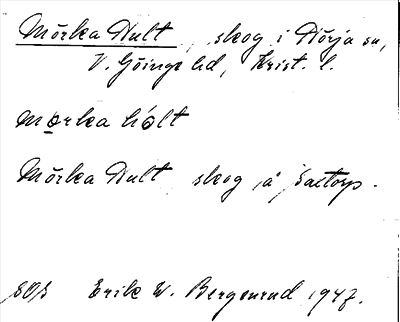 Mörka Hult, skog i Nörja sn,
V. Göinge hd, Krist. l.
mo̲rka hólt
Mörka Hult skog å Saxtorp.
SOS Erik W. Bergenrud 1947.